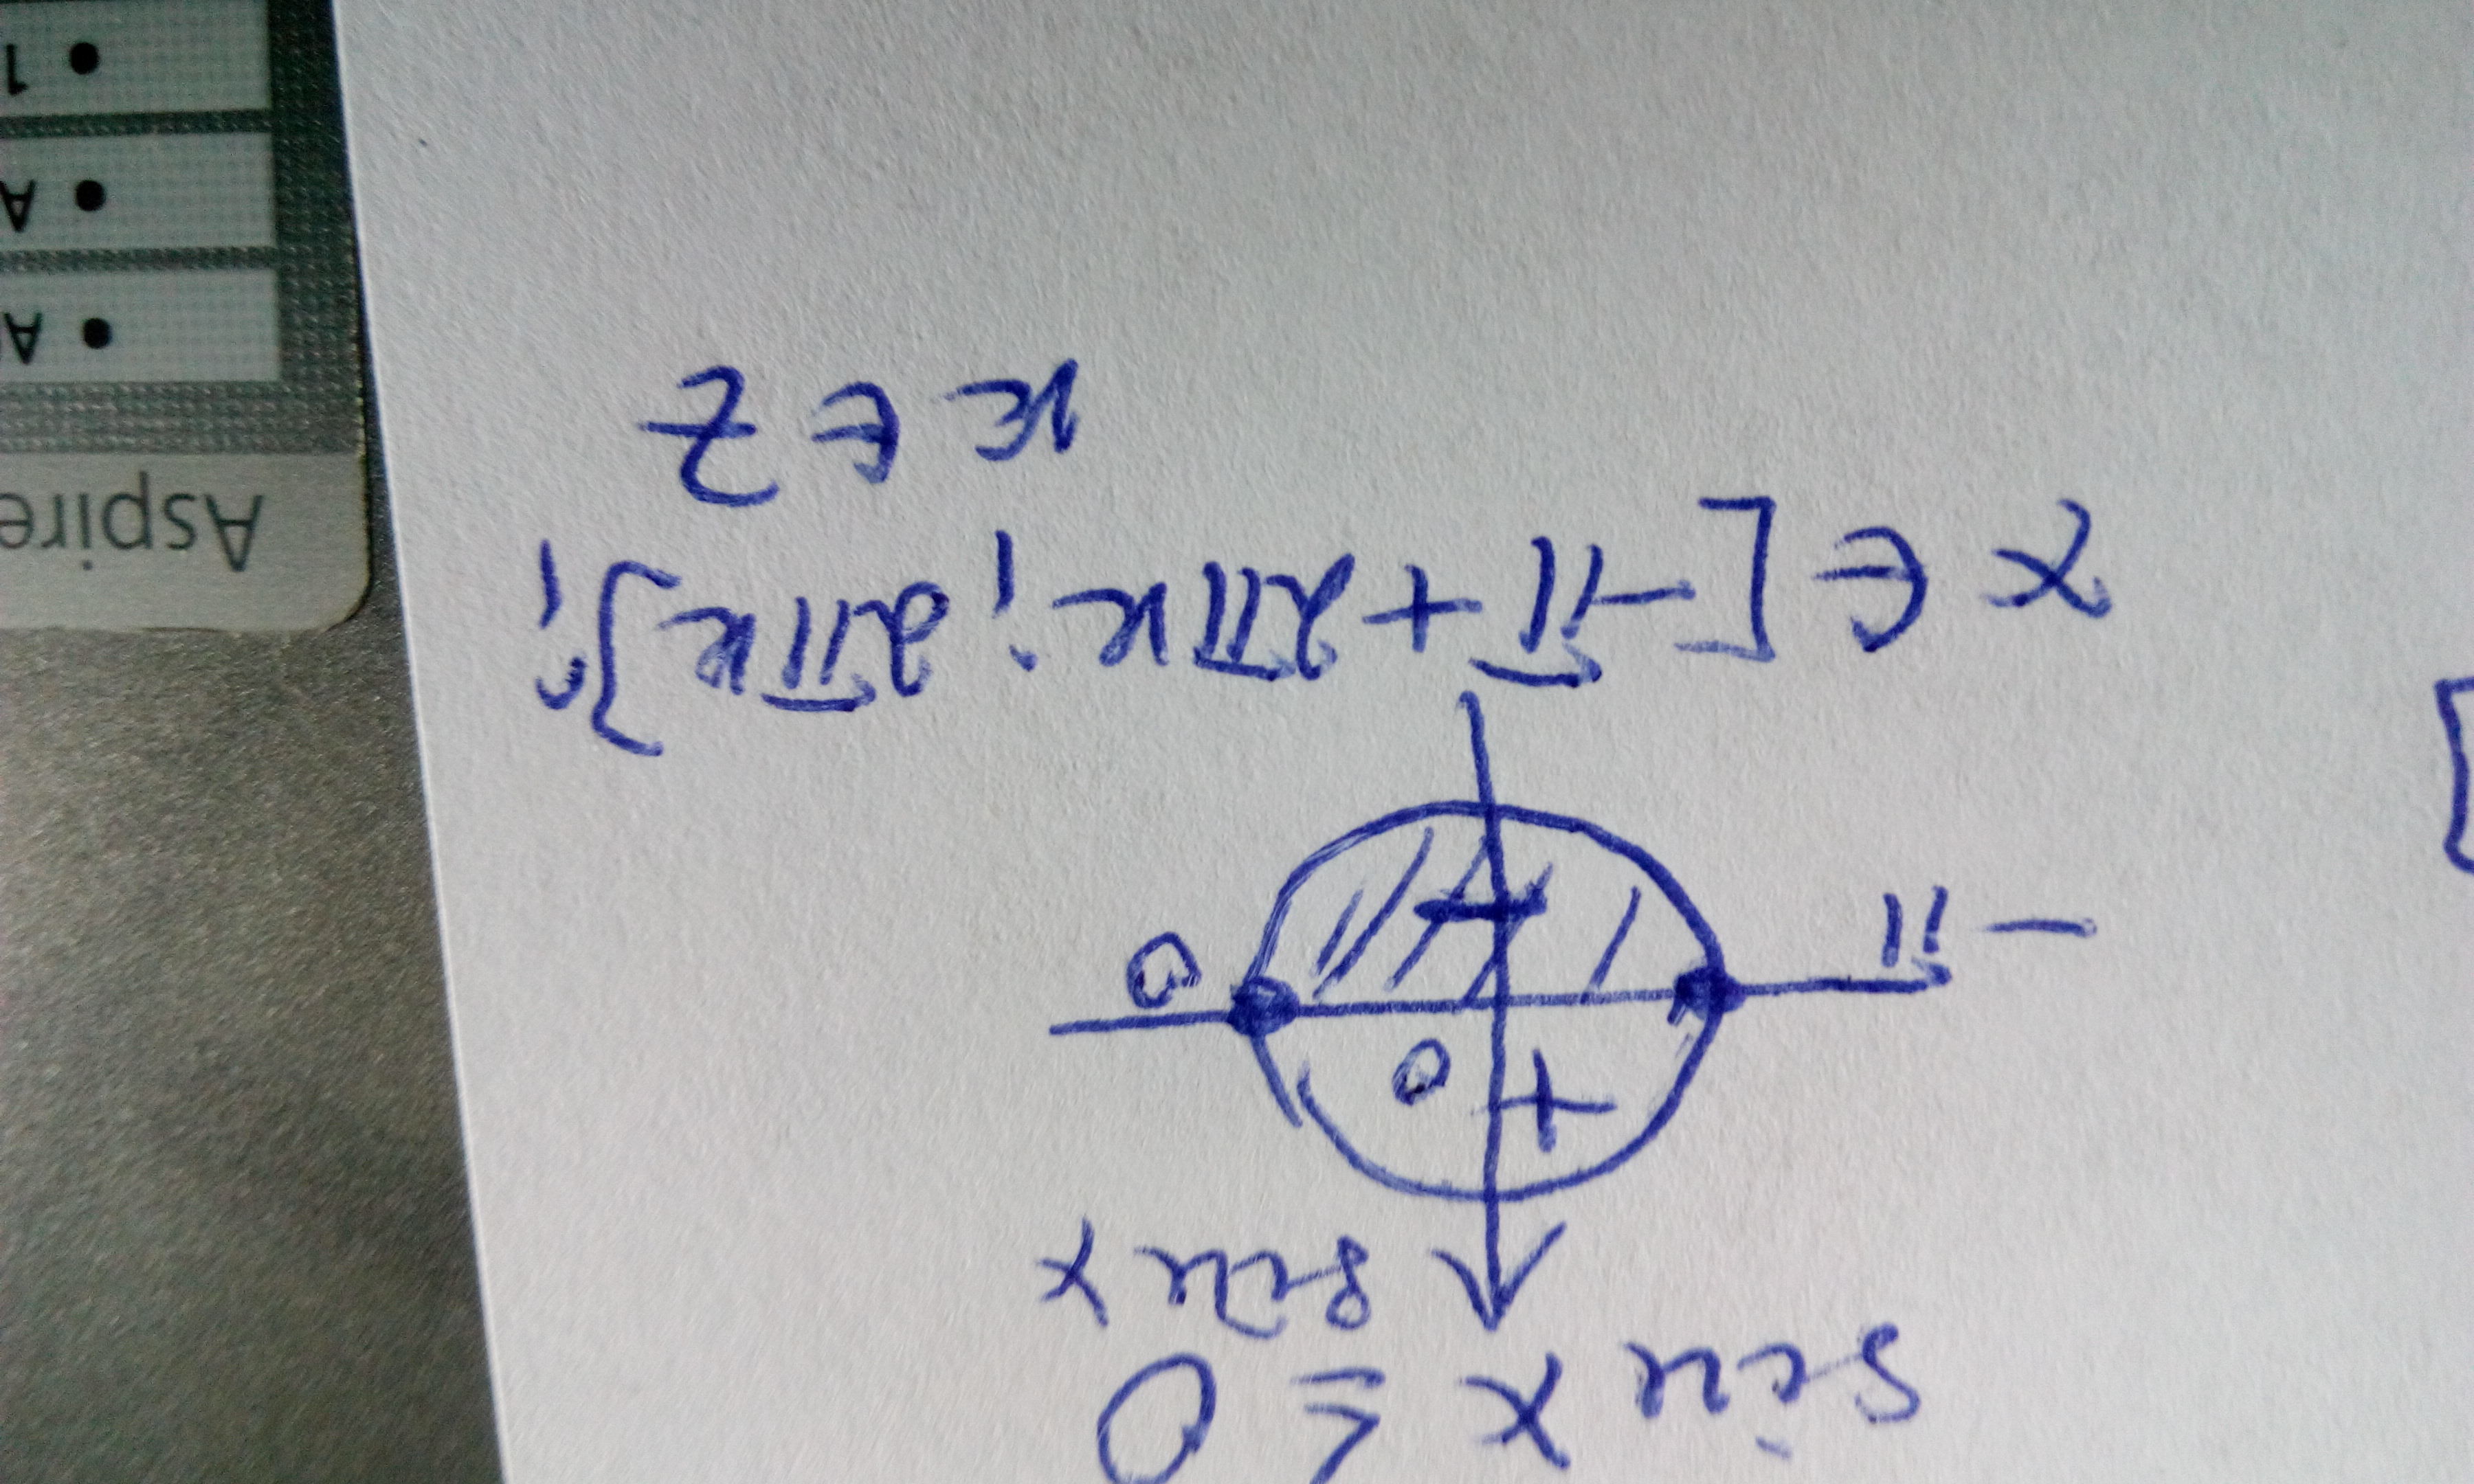 sin x ≤ 0
sin x
+
0
-π
0
-
x ∈ [-π + 2πk; 2πk];
k ∈ Z
Aspire